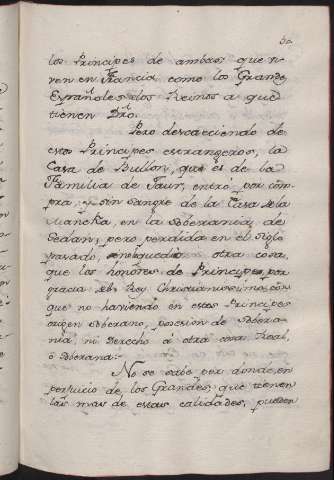 los Principes de ambas que vi
ven en Francia como los Grandes
Españoles los Reinos a que
tienen Dro.
Pero descaeciendo de
estos Principes estrangeros, la
Casa de Bullon, que es de la
Familia de Taur, entró por com
pra, y sin sangre de la Casa de la
Marcka, en la soberania de
Sedan, pero perdida en el siglo
pasado, no le quedó otra cosa,
que los honores de Principes, por
gracia del Rey Christianissimo, con
que no haviendo en estos Principes
origen soberano, posesion de sobera
nia, ni derecho á otra casa Real,
ó soberana:
No se sabe por donde, en
perjuicio de los Grandes, que tienen
las mas de estas calidades, pueden